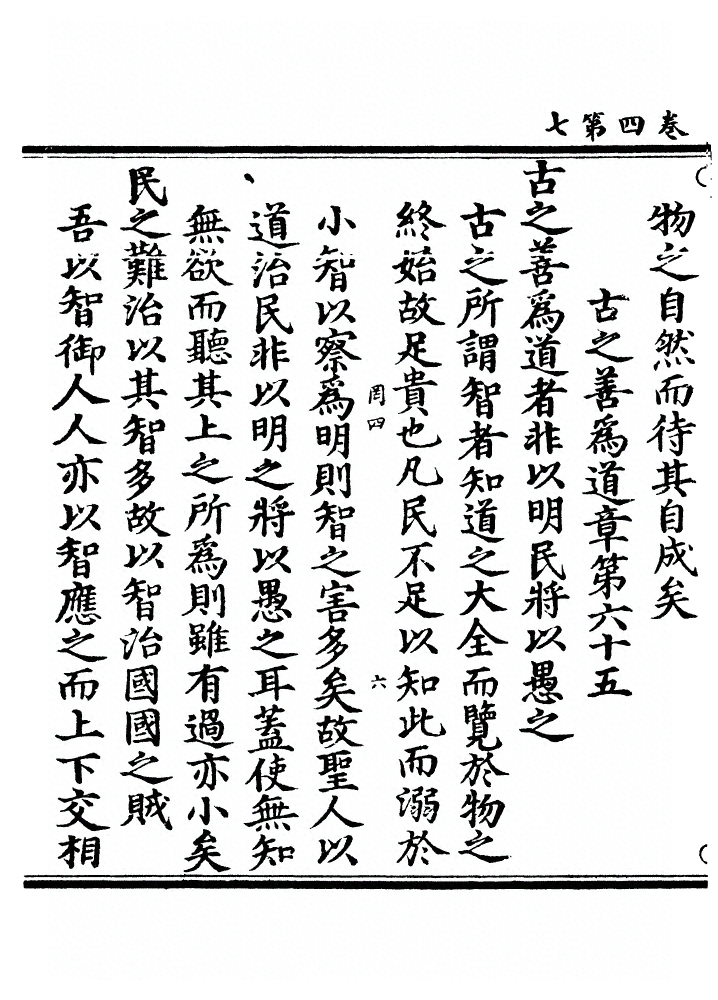 卷四第七
物之自然而待其自成矣
古之善爲道章第六十五
古之善爲道者非以明民將以愚之
古之所謂智者知道之大全而覽於物之
終始故足貴也凡民不足以知此而溺於
罔四
六
小智以察爲明則智之害多矣故聖人以
道治民非以明之將以愚之耳蓋使無知
無欲而聽其上之所爲則雖有過亦小矣
民之難治以其智多故以智治國國之賊
吾以智御人人亦以智應之而上下交相